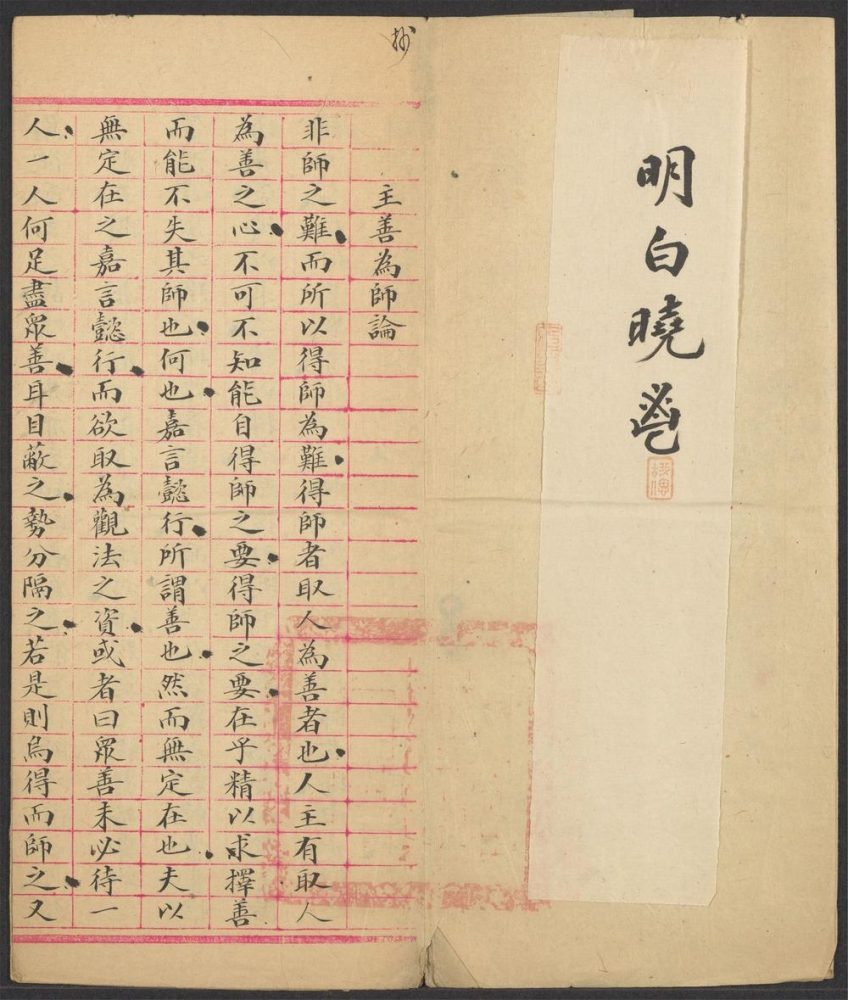 明白曉鬯
抄
主善為師論
非師之難而所以得師為難得師者取人為善者也人主有取人
為善之心不可不知能自得師之要得師之要在乎精以求擇善
而能不失其師也何也嘉言懿行所謂善也然而無定在也夫以
無定在之嘉言懿行而欲取為觀法之資或者曰眾善未必待一
人一人何足盡眾善耳目蔽之勢分隔之若是則烏得而師之又